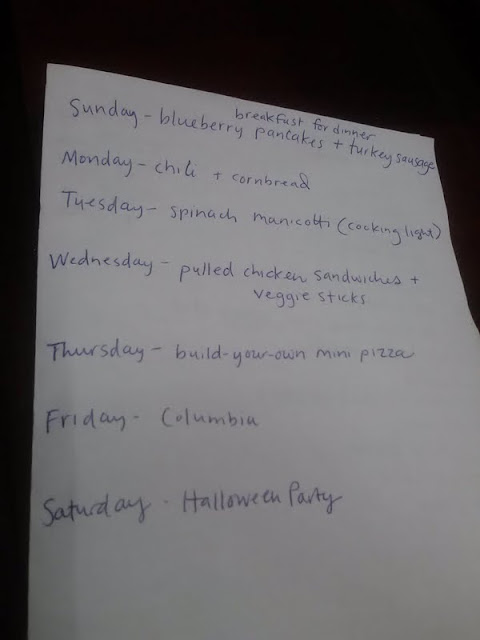 breakfast for dinner
Sunday - blueberry pancakes + turkey sausage
Monday - chili + cornbread
Tuesday - spinach manicotti (cooking light)
Wednesday - pulled chicken sandwiches +
veggie sticks
Thursday - build-your-own mini pizza
Friday - Columbia
Saturday - Halloween Party